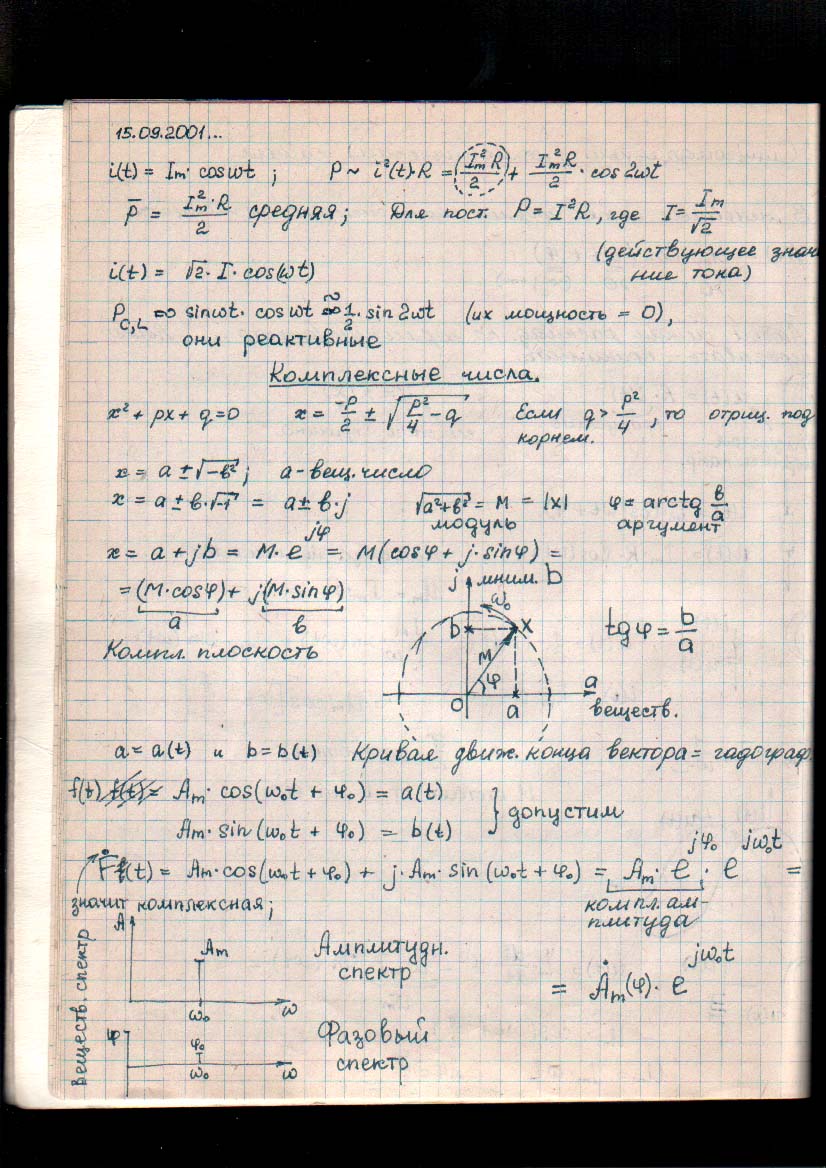 15.09.2001...
i(t) = Im · cosωt ; P ~ i²(t)·R = Im²R/2 + Im²R/2 · cos 2ωt
P̄ = Im²·R/2 средняя; Для пост. P = I²R, где I = Im/√2
(действующее значе-
ние тока)
i(t) = √2 · I · cos(ωt)
P_C,L ∞ sinωt · cosωt ≈ 1/2 · sin 2ωt (их мощность = 0),
они реактивные
Комплексные числа.
x² + px + q = 0 x = -p/2 ± √(p²/4 - q) Если q > p²/4, то отриц. под
корнем.
x = a ± √-в²; a - вещ. число
x = a ± в·√-1 = a ± в·j √a²+в² = M = |x| φ = arctg в/a
модуль аргумент
x = a + jb = M·e^jφ = M(cosφ + j·sinφ) =
= (M·cosφ) + j(M·sinφ)
a в
j мним. b
ω₀
b x
M
φ
0 a a
веществ.
tgφ = b/a
Компл. плоскость
a = a(t) и b = b(t) Кривая движ. конца вектора = гадограф.
f(t) f(t) = Am · cos(ω₀t + φ₀) = a(t)
Am · sin(ω₀t + φ₀) = b(t)
} допустим
Ḟ(t) = Am·cos(ω₀t + φ₀) + j·Am·sin(ω₀t + φ₀) = Am·e^jφ₀ · e^jω₀t =
значит комплексная; компл. ам-
плитуда
= Ȧm(φ) · e^jω₀t
веществ. спектр
A
Am
ω₀ ω
Амплитудн.
спектр
φ
φ₀
ω₀ ω
Фазовый
спектр